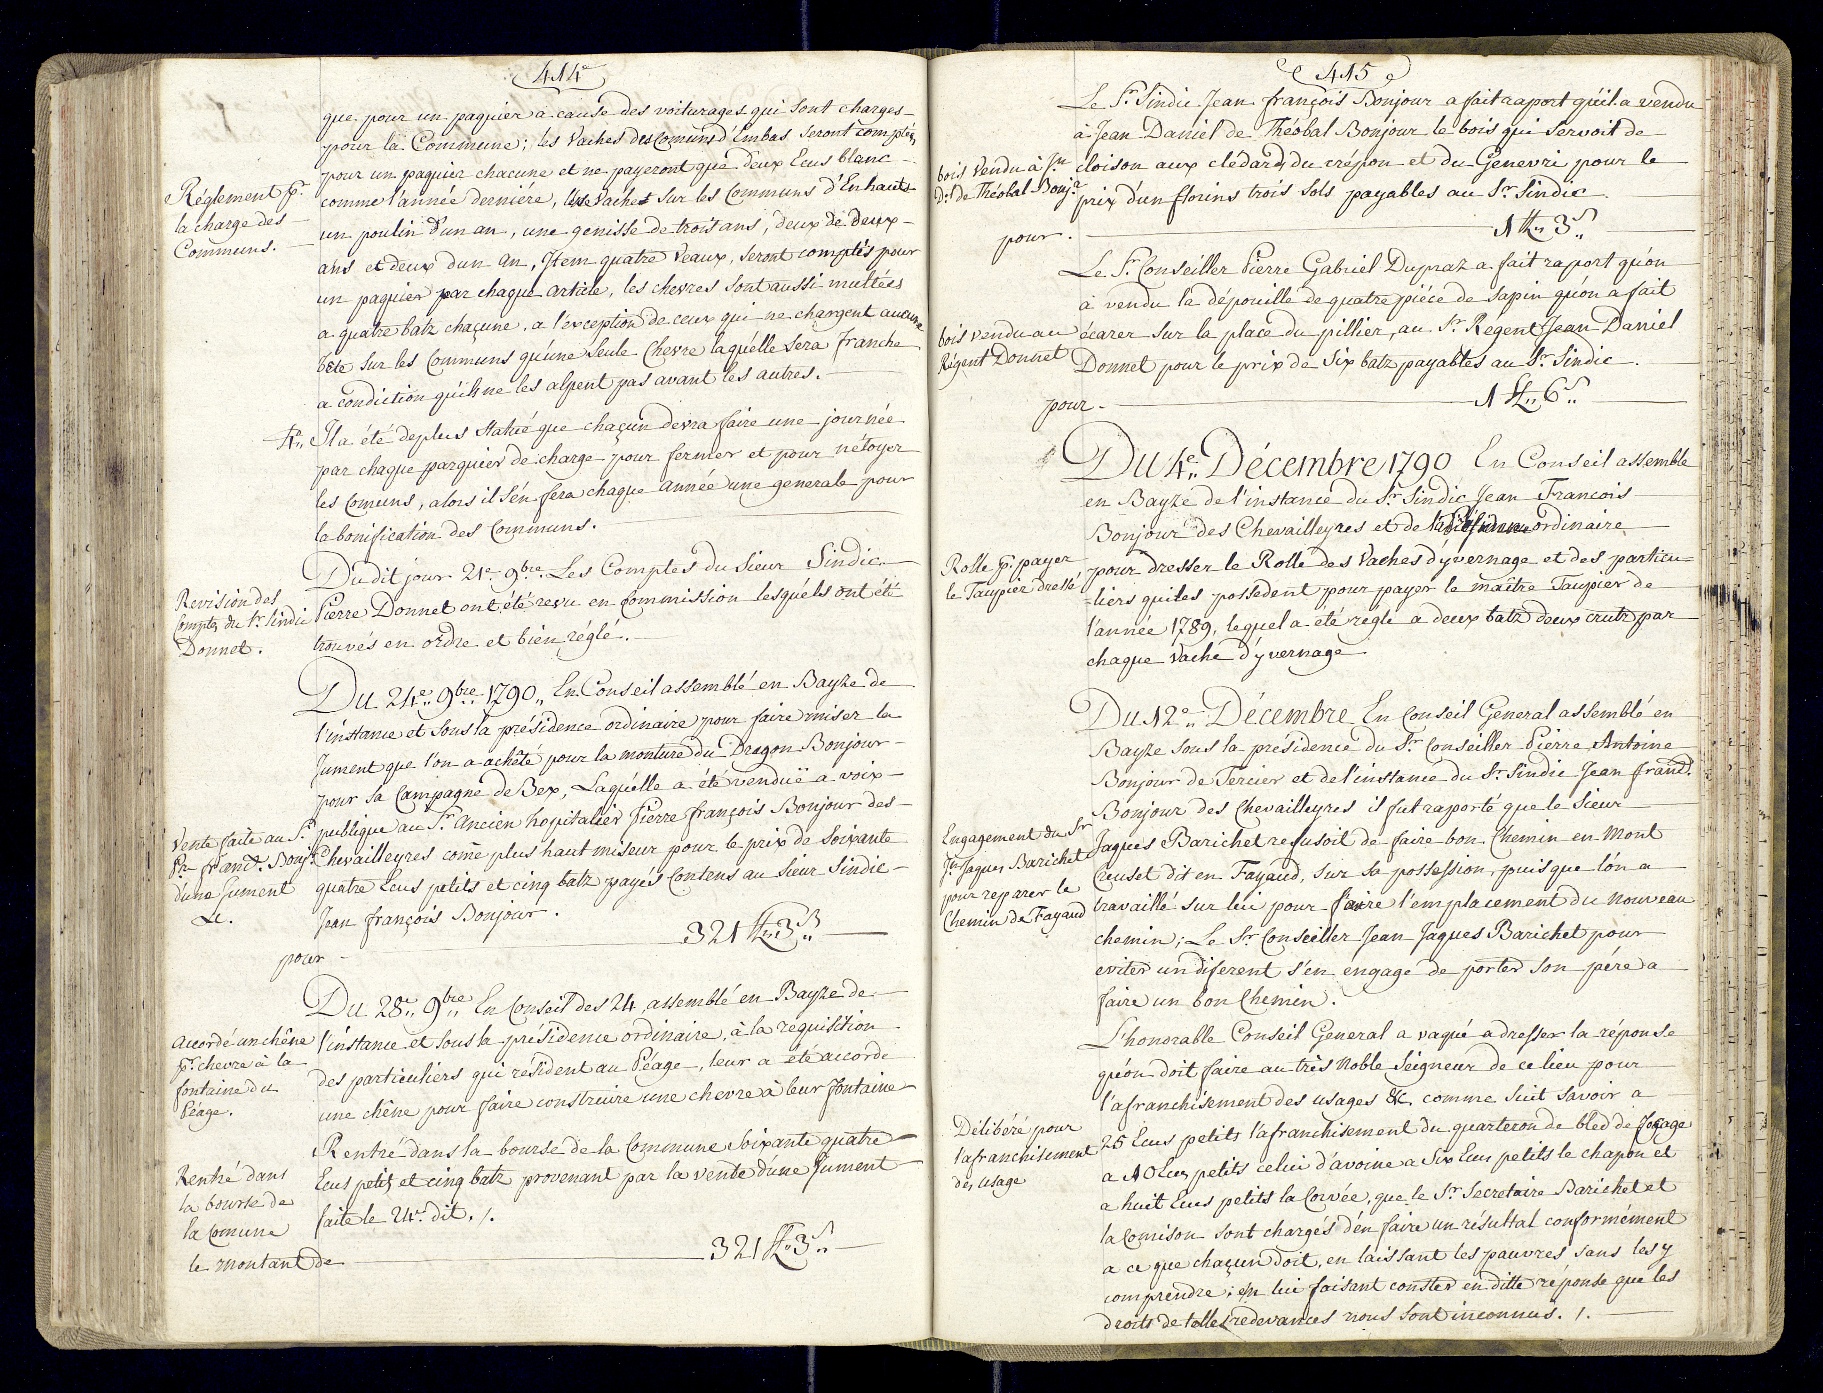 414e
que pour un paquier a cause des voiturages qui sont charges
pour la Commune; les Vaches des Comuns d'Embas seront comptées
pour un paquier chacune et ne payeront que deux Ecus blanc
Réglement pr.
la charge des
Communs.
comme l'année derniére, Une Vache sur les Communs d'Enhauts
un poulin d'un an, une genisse de trois ans, deux de deux
ans et deux dun an, Item quatre Veaux, seront comptés pour
un paquier par chaque article, les chevres sont aussi multées
a quatre batz chaçune, a l'exception de ceux qui ne chargent aucune
bête sur les Communs qu'une seule Chevre laquelle sera franche
a condiction qu'ils ne les alpent pas avant les autres.
4e. Il a été deplus statué que chaçun devra faire une journée
par chaque parquier de charge pour fermer et pour nétoyer
les Comuns, alors il s'en fera chaque année une generale pour
la bonification des Communs.
Revision des
Comptes du Sr. Sindic
Donnet.
Du dit jour 21e. 9bre. Les Comptes du Sieur Sindic
Pierre Donnet ont été revu en Commission lesquels ont été
trouvés en ordre et bien réglé.
Du 24e. 9bre 1790,, En Conseil assemblé en Bayze de
l'instance et sous la présidence ordinaire pour faire miser la
Jument que l'on a acheté pour la monture du Dragon Bonjour
pour sa Campagne de Bex, Laquélle a été venduë a voix
Vente faite au Sr.
Pre. franc. Bonjr.
d'une Jument
publique au Sr. ancien hopitalier Pierre françois Bonjour des
Chevailleyres come plus haut miseur pour le prix de soixante
quatre Ecus petits et cinq batz payés Contens au Sieur Sindic
Jean françois Bonjour.
pour 321 ff,, 3 s,,
Du 28e,, 9bre,, En Conseil des 24, assemblé en Bayze de
Accordé un chêne
pr. chevre à la
fontaine du
Péage.
l'instance et sous la présidence ordinaire, à la requisition
des particuliers qui résident au Péage, leur a été accordé
une chêne pour faire construire une chevre à leur fontaine
Rentré dans
la bourse de
la Comune
le montant de 321 ff,, 3 s,,
Rentré dans la bourse de la Commune soixante quatre
Ecus petits et cinq batz provenant par la vente d'une Jument
faite le 24e. dit. /.
415e
Le Sr. Sindic Jean françois Bonjour a fait raport qu'il a vendu
à Jean Daniel de Théobal Bonjour le bois qui servoit de
bois Vendu à Jn
Dl. de Théobal Bonjr
cloison aux clédard, du crépon et du Genevri pour le
prix d'un florins trois sols payables au Sr. Sindic
pour. 1 ff,, 3 s,,
Le Sr. Conseiller Pierre Gabriel Dupraz a fait raport qu'on
à vendu la dépouille de quatre piéce de sapin qu'on a fait
bois vendu au
Régent Donnet
écarer sur la place du pillier, au Sr. Regent Jean Daniel
Donnet pour le prix de Six batz payables au Sr. Sindic.
pour 1 ff,, 6 s,,
Du 4e,, Décembre 1790 En Conseil assemble
en Bayze de l'instance du Sr. Sindic Jean François
Bonjour des Chevailleyres et de ordinaire
Rolle pr. payer
le Taupier dressé
pour dresser le Rolle des Vaches dyvernage et des particu=
=liers qui les possedent pour payer le maître Taupier de
l'année 1789, lequel a été reglé a deux batz deux crutz par
chaque Vache d'yvernage
Du 12e,, Décembre En Conseil General assemblé en
Bayze sous la présidence du Sr. Conseiller Pierre Antoine
Bonjour de Tercier et de l'instance du Sr. Sindic Jean franc.
Bonjour des Chevailleyres il fut raporté que le Sieur
Engagement du Sr
Jn Jaques Barichet
pour reparer le
Chemin de Fayaud
Jaques Barichet refusoit de faire bon Chemin en Mont
Creuset dit en Fayaud, sur sa possession, puisque l'ón a
travaillé sur lui pour faire l'emplacement du nouveau
chemin; Le Sr. Conseiller Jean Jaques Barichet pour
eviter un diferent s'en engage de porter son pére a
faire un bon Chemin.
L'honorable Conseil General a vaqué a dresser la réponse
qu'on doit faire au très Noble Seigneur de ce lieu pour
l'afranchisement des usages &c, comme suit savoir a
Délibéré pour
l'afranchisement
des usage
25 Ecus petits l'afranchisement du quarteron de bled de focage
a 10 Ecus petits celui d'avoine a Six Ecus petits le chapon et
a huit Ecus petits la Corvée, que le Sr. Secretaire Barichet et
la Comison sont chargés d'en faire un résultat conformément
a ce que chaçun doit, en laissant les pauvres sans les y
comprendre; en lui faisant conster en ditte réponse que les
droits de telles redevances nous sont inconnus. /.